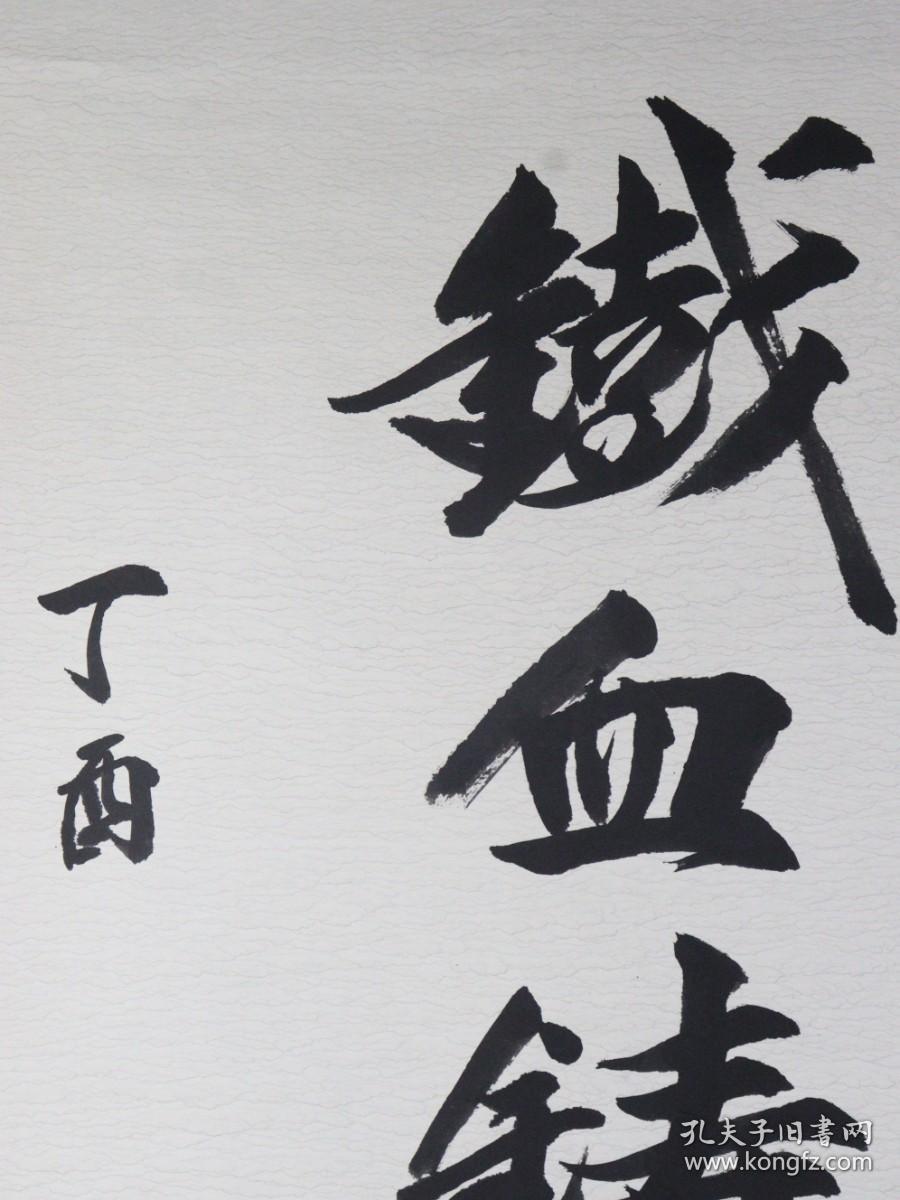 鐵血
丁酉
孔夫子旧書网
www.kongfz.com